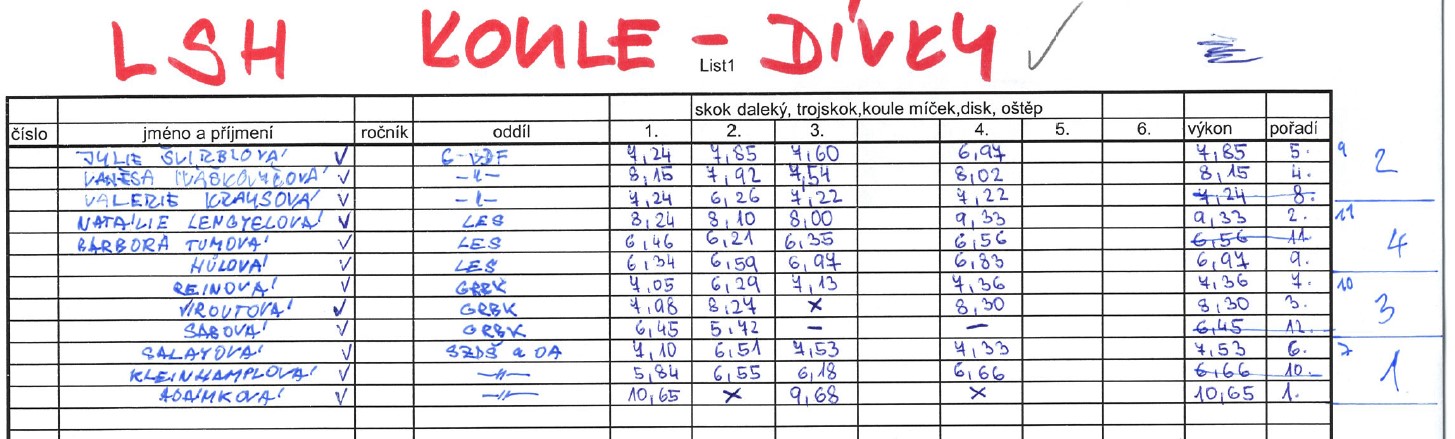 LSH KOULE - DÍVKY ✓
List1
skok daleký, trojskok,koule míček,disk, oštěp
číslo jméno a příjmení ročník oddíl 1. 2. 3. 4. 5. 6. výkon pořadí
JULIE ŠVIRBLOVÁ ✓ G-VDF 7,24 7,85 7,60 6,97 7,85 5. 9 2
VANESA ✓ -"- 8,15 7,92 7,54 8,02 8,15 4.
VALERIE KRAUSOVÁ ✓ -"- 7,24 6,26 7,22 7,22 7,24 8.
NATÁLIE LENGYELOVÁ ✓ LES 8,24 8,10 8,00 9,33 9,33 2. 11
BARBORA TUMOVÁ ✓ LES 6,46 6,21 6,35 6,56 6,56 11. 4
HŮLOVÁ ✓ LES 6,34 6,59 6,97 6,83 6,97 9.
REINOVÁ ✓ GRBK 7,05 6,29 7,13 7,36 7,36 7. 10
VIROUTOVÁ ✓ GRBK 7,98 8,27 x 8,30 8,30 3. 3
SABOVÁ ✓ GRBK 6,45 5,72 - - 6,45 12.
SALAYOVÁ ✓ SZDŠ a OA 7,10 6,51 7,53 7,33 7,53 6. 7
KLEINHAMPLOVÁ ✓ -"- 5,84 6,55 6,18 6,66 6,66 10. 1
ADÁMKOVÁ ✓ -"- 10,65 x 9,68 x 10,65 1.